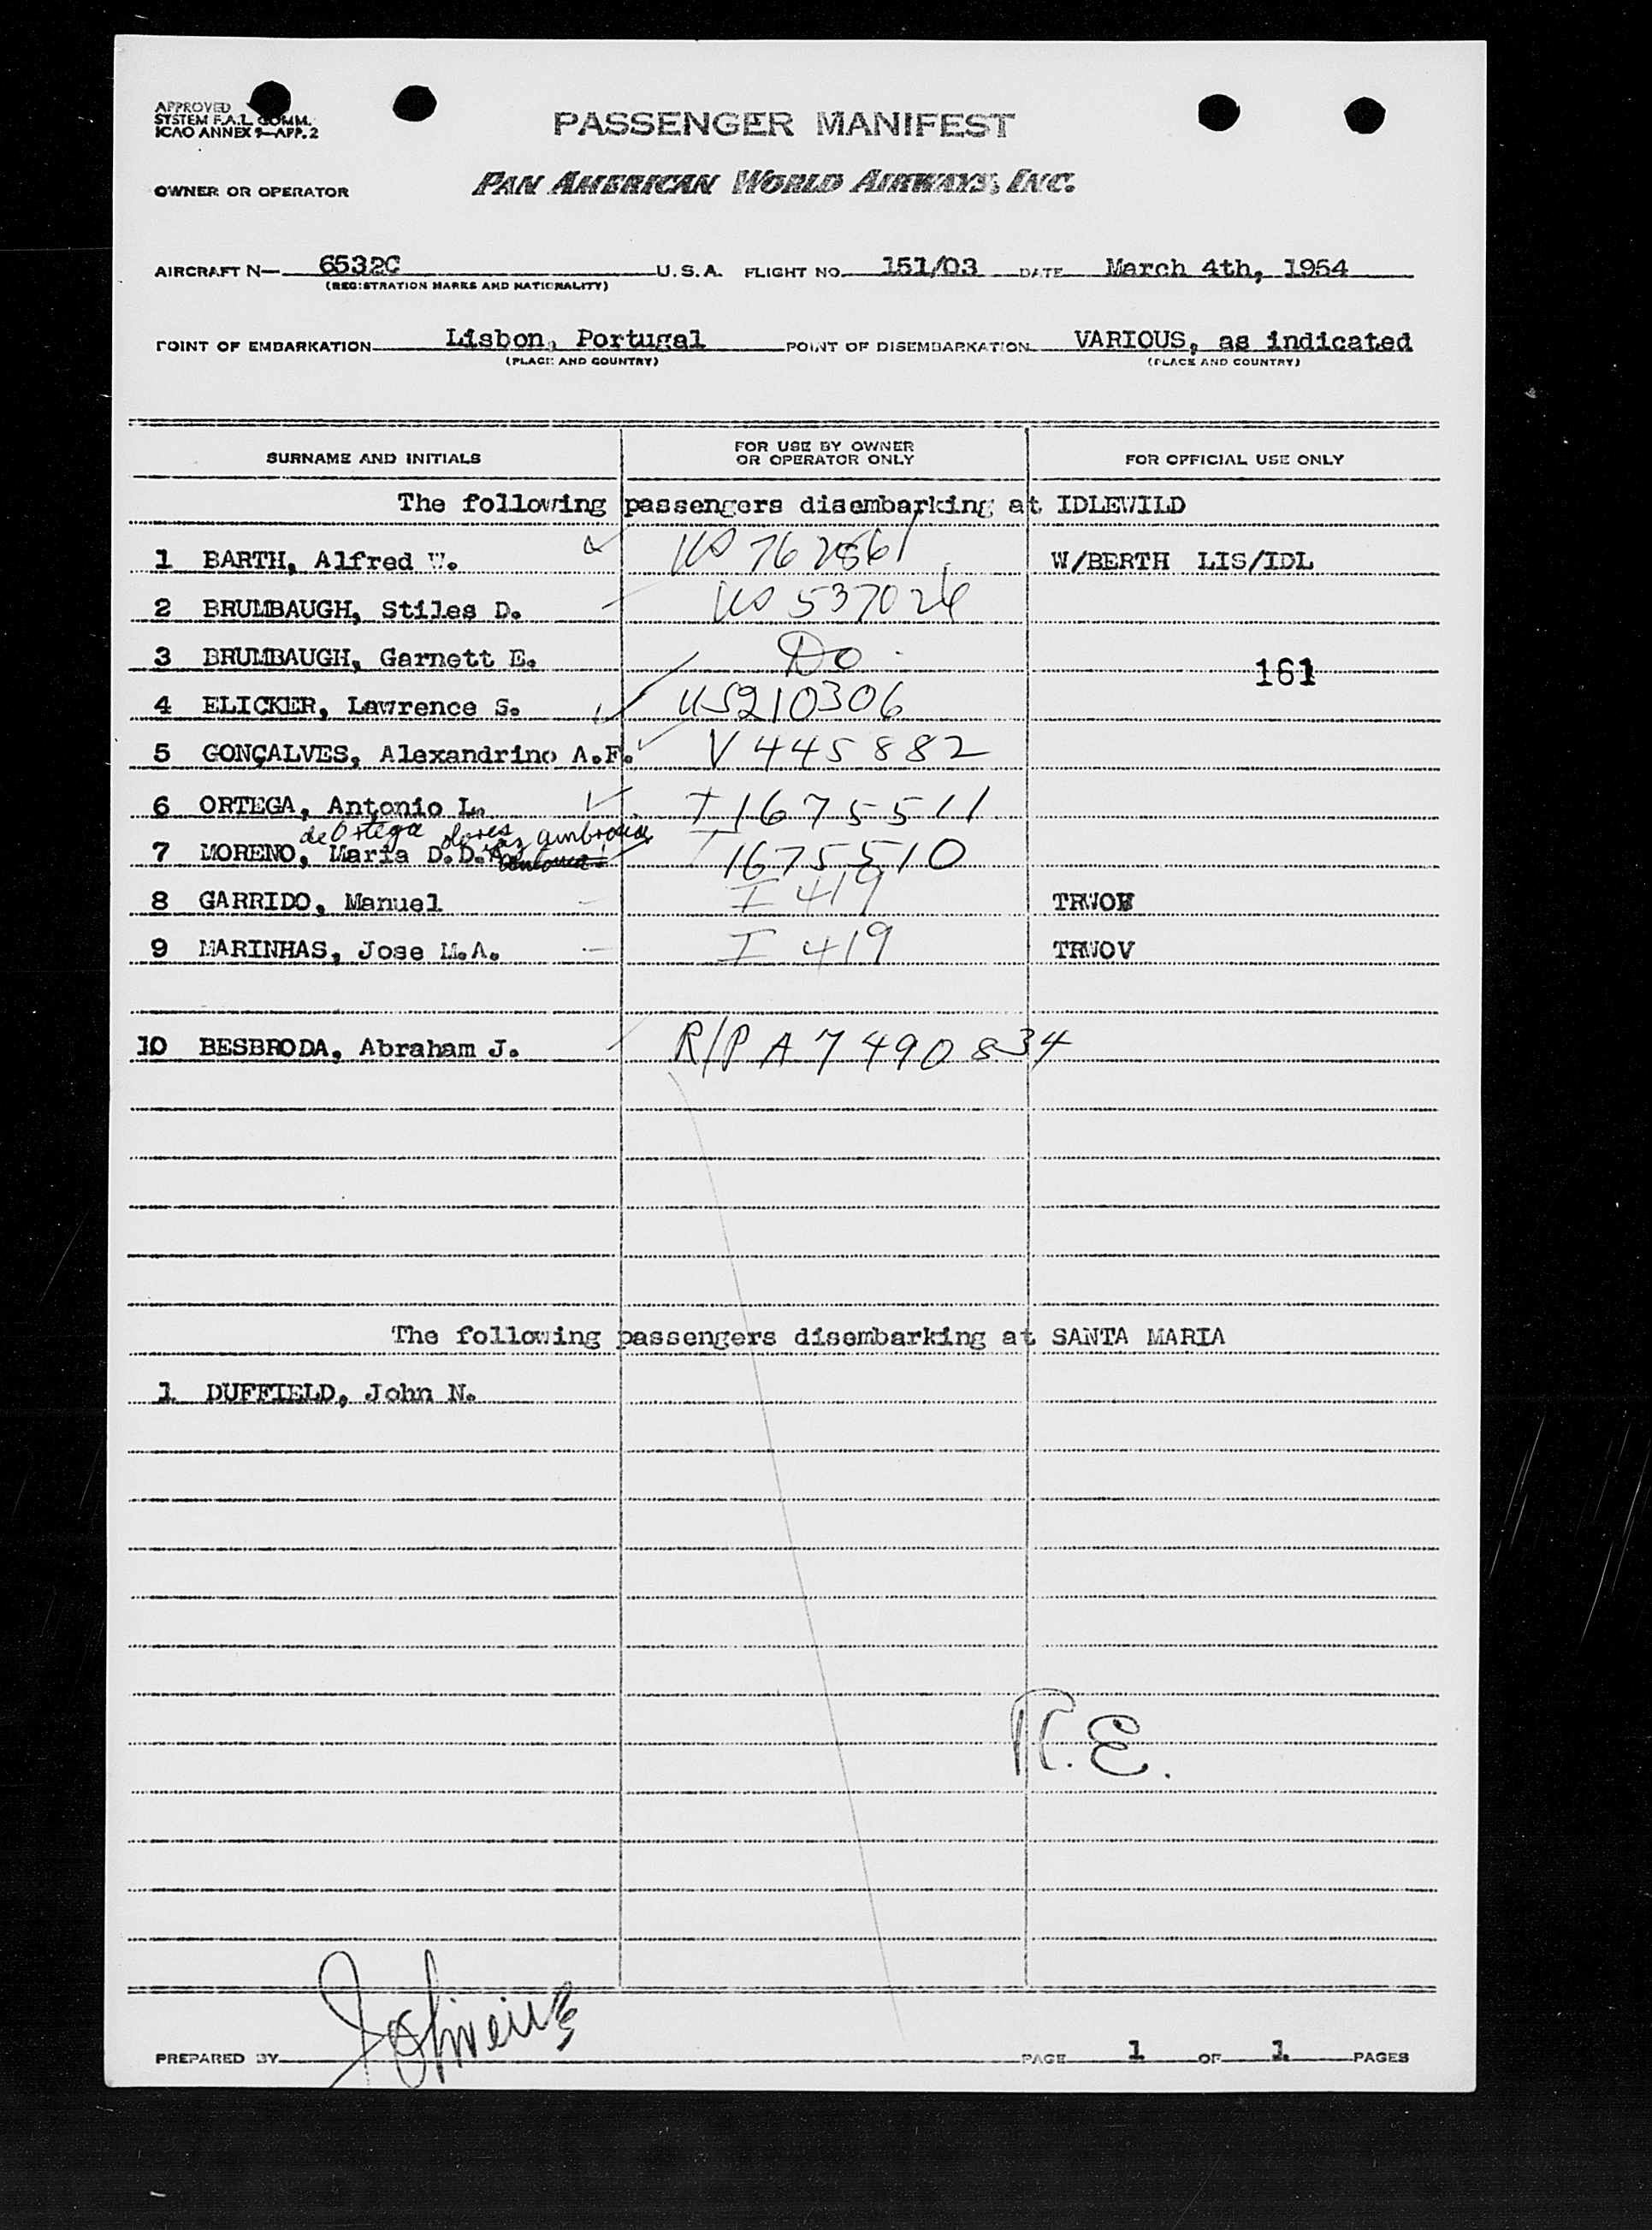 APPROVED
SYSTEM F.A.L. COMM.
ICAO ANNEX 9—APP. 2
PASSENGER MANIFEST
OWNER OR OPERATOR PAN AMERICAN WORLD AIRWAYS, INC.
AIRCRAFT N— 6532C U.S.A. FLIGHT NO. 151/03 DATE March 4th, 1954
(REGISTRATION MARKS AND NATIONALITY)
POINT OF EMBARKATION Lisbon, Portugal POINT OF DISEMBARKATION VARIOUS, as indicated
(PLACE AND COUNTRY) (PLACE AND COUNTRY)
SURNAME AND INITIALS FOR USE BY OWNER OR OPERATOR ONLY FOR OFFICIAL USE ONLY
The following passengers disembarking at IDLEWILD
1 BARTH, Alfred W. US 76 W/BERTH LIS/IDL
2 BRUMBAUGH, Stiles D. US 537026
3 BRUMBAUGH, Garnett E. Do. 161
4 ELICKER, Lawrence S. US210306
5 GONÇALVES, Alexandrino A.F. V 445882
6 ORTEGA, Antonio L. I 1675511
de Ortega
7 MORENO, Maria D.D. I 1675510
8 GARRIDO, Manuel I 419 TRWOV
9 MARINHAS, Jose M.A. I 419 TRWOV
10 BESBRODA, Abraham J. R/P A7490834
The following passengers disembarking at SANTA MARIA
1 DUFFIELD, John N.
R.E.
PREPARED BY PAGE 1 OF 1 PAGES